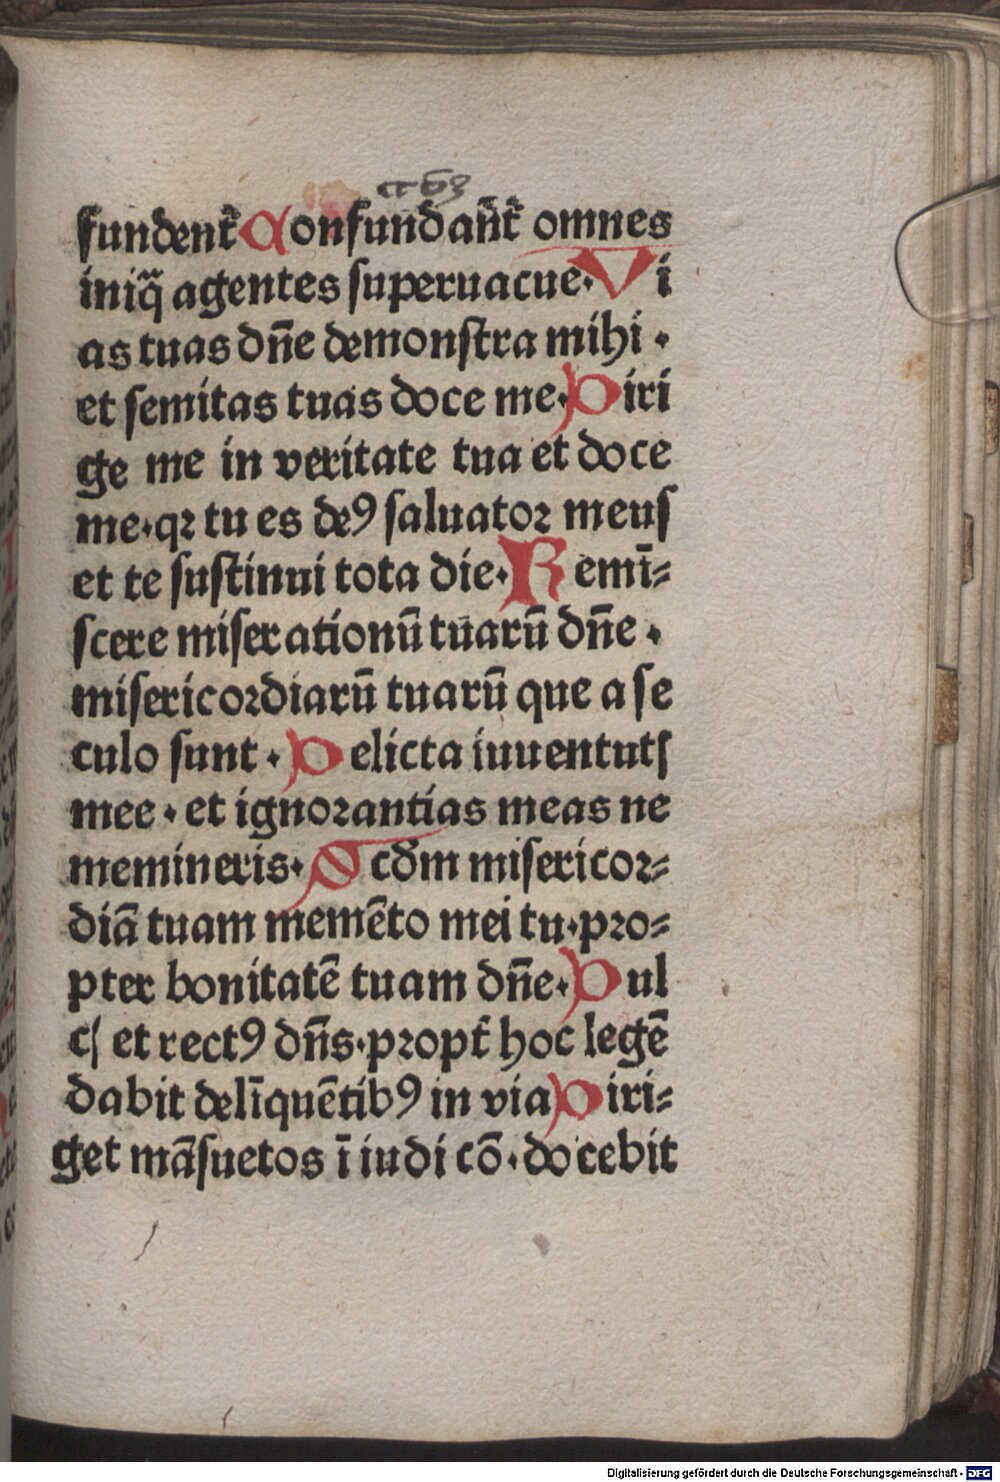 fundent᷑ Confundant᷑ omnes
iniq̄ agentes superuacue· Vi
as tuas dn̄e demonstra mihi ·
et semitas tuas doce me· Diri
ge me in veritate tua et doce
me·qꝛ tu es deꝰ saluatoꝛ meus
et te sustinui tota die· Remī⸗
scere miserationū tuarū dn̄e ·
misericoꝛdiarū tuarū que a se
culo sunt · Delicta iuuentutꝭ
mee · et ignoꝛantias meas ne
memineris· Scd̄m misericoꝛ⸗
diā tuam memēto mei tu·pꝛo⸗
pter bonitatē tuam dn̄e· Dul
cꝭ et rectꝰ dn̄s·pꝛopt᷑ hoc legē
dabit delīquētibꝰ in via Diri⸗
get māsuetos ī iudi cō·docebit
Digitalisierung gefördert durch die Deutsche Forschungsgemeinschaft - DFG